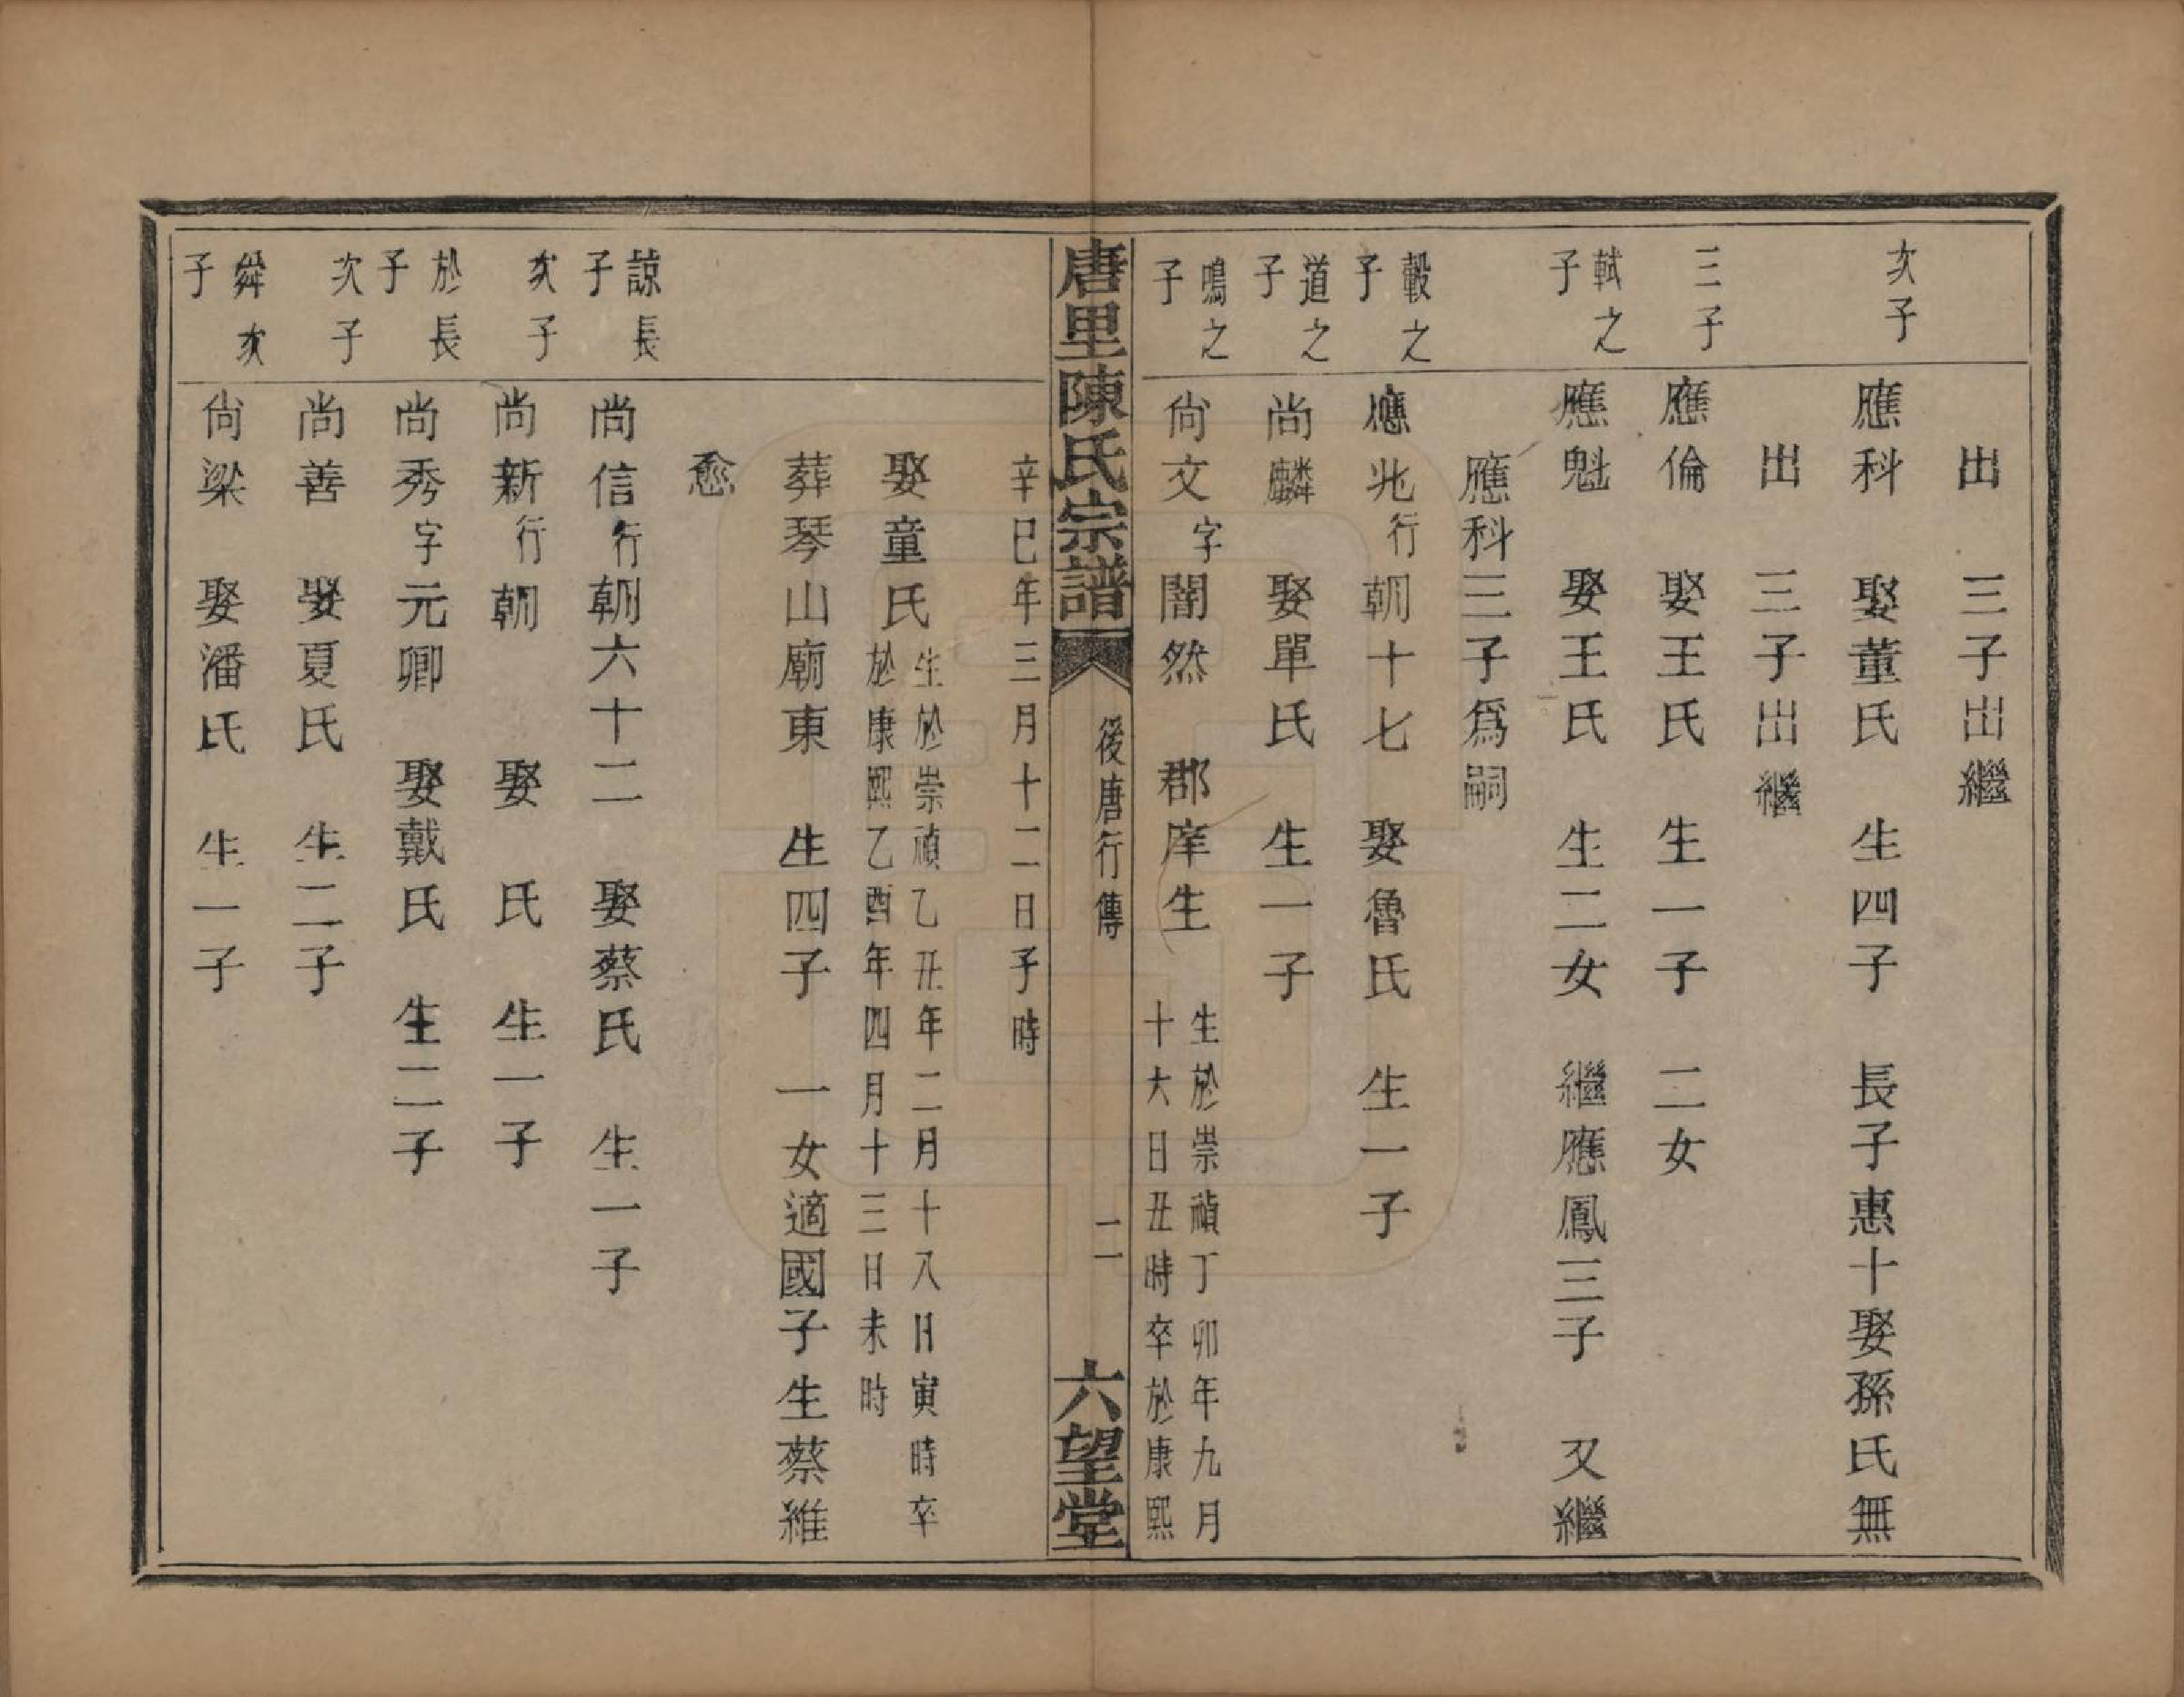 出　三子出繼
次子
應科　娶董氏　生四子　長子惠十娶孫氏無
出　三子出繼
三子
應倫　娶王氏　生一子　二女
軾之
子
應魁　娶王氏　生二女　繼應鳳三子　又繼
應科三子爲嗣
轂之
子
應兆行朝十七　娶魯氏　生一子
道之
子
尚麟　娶單氏　生一子
鳴之
子
尚文字闇然　郡庠生　生於崇禎丁卯年九月
十六日丑時卒於康熙
唐里陳氏宗譜　後唐行傳　二　六望堂
辛巳年三月十二日子時
娶童氏　生於崇禎乙丑年二月十八日寅時卒
於康熙乙酉年四月十三日未時
葬琴山廟東　生四子　一女適國子生蔡維
愈
諒長
子
尚信行朝六十二　娶蔡氏　生一子
次子
尚新行朝　娶　氏　生一子
於長
子
尚秀字元卿　娶戴氏　生二子
次子
尚善　娶夏氏　生二子
舜次
子
尚梁　娶潘氏　生一子